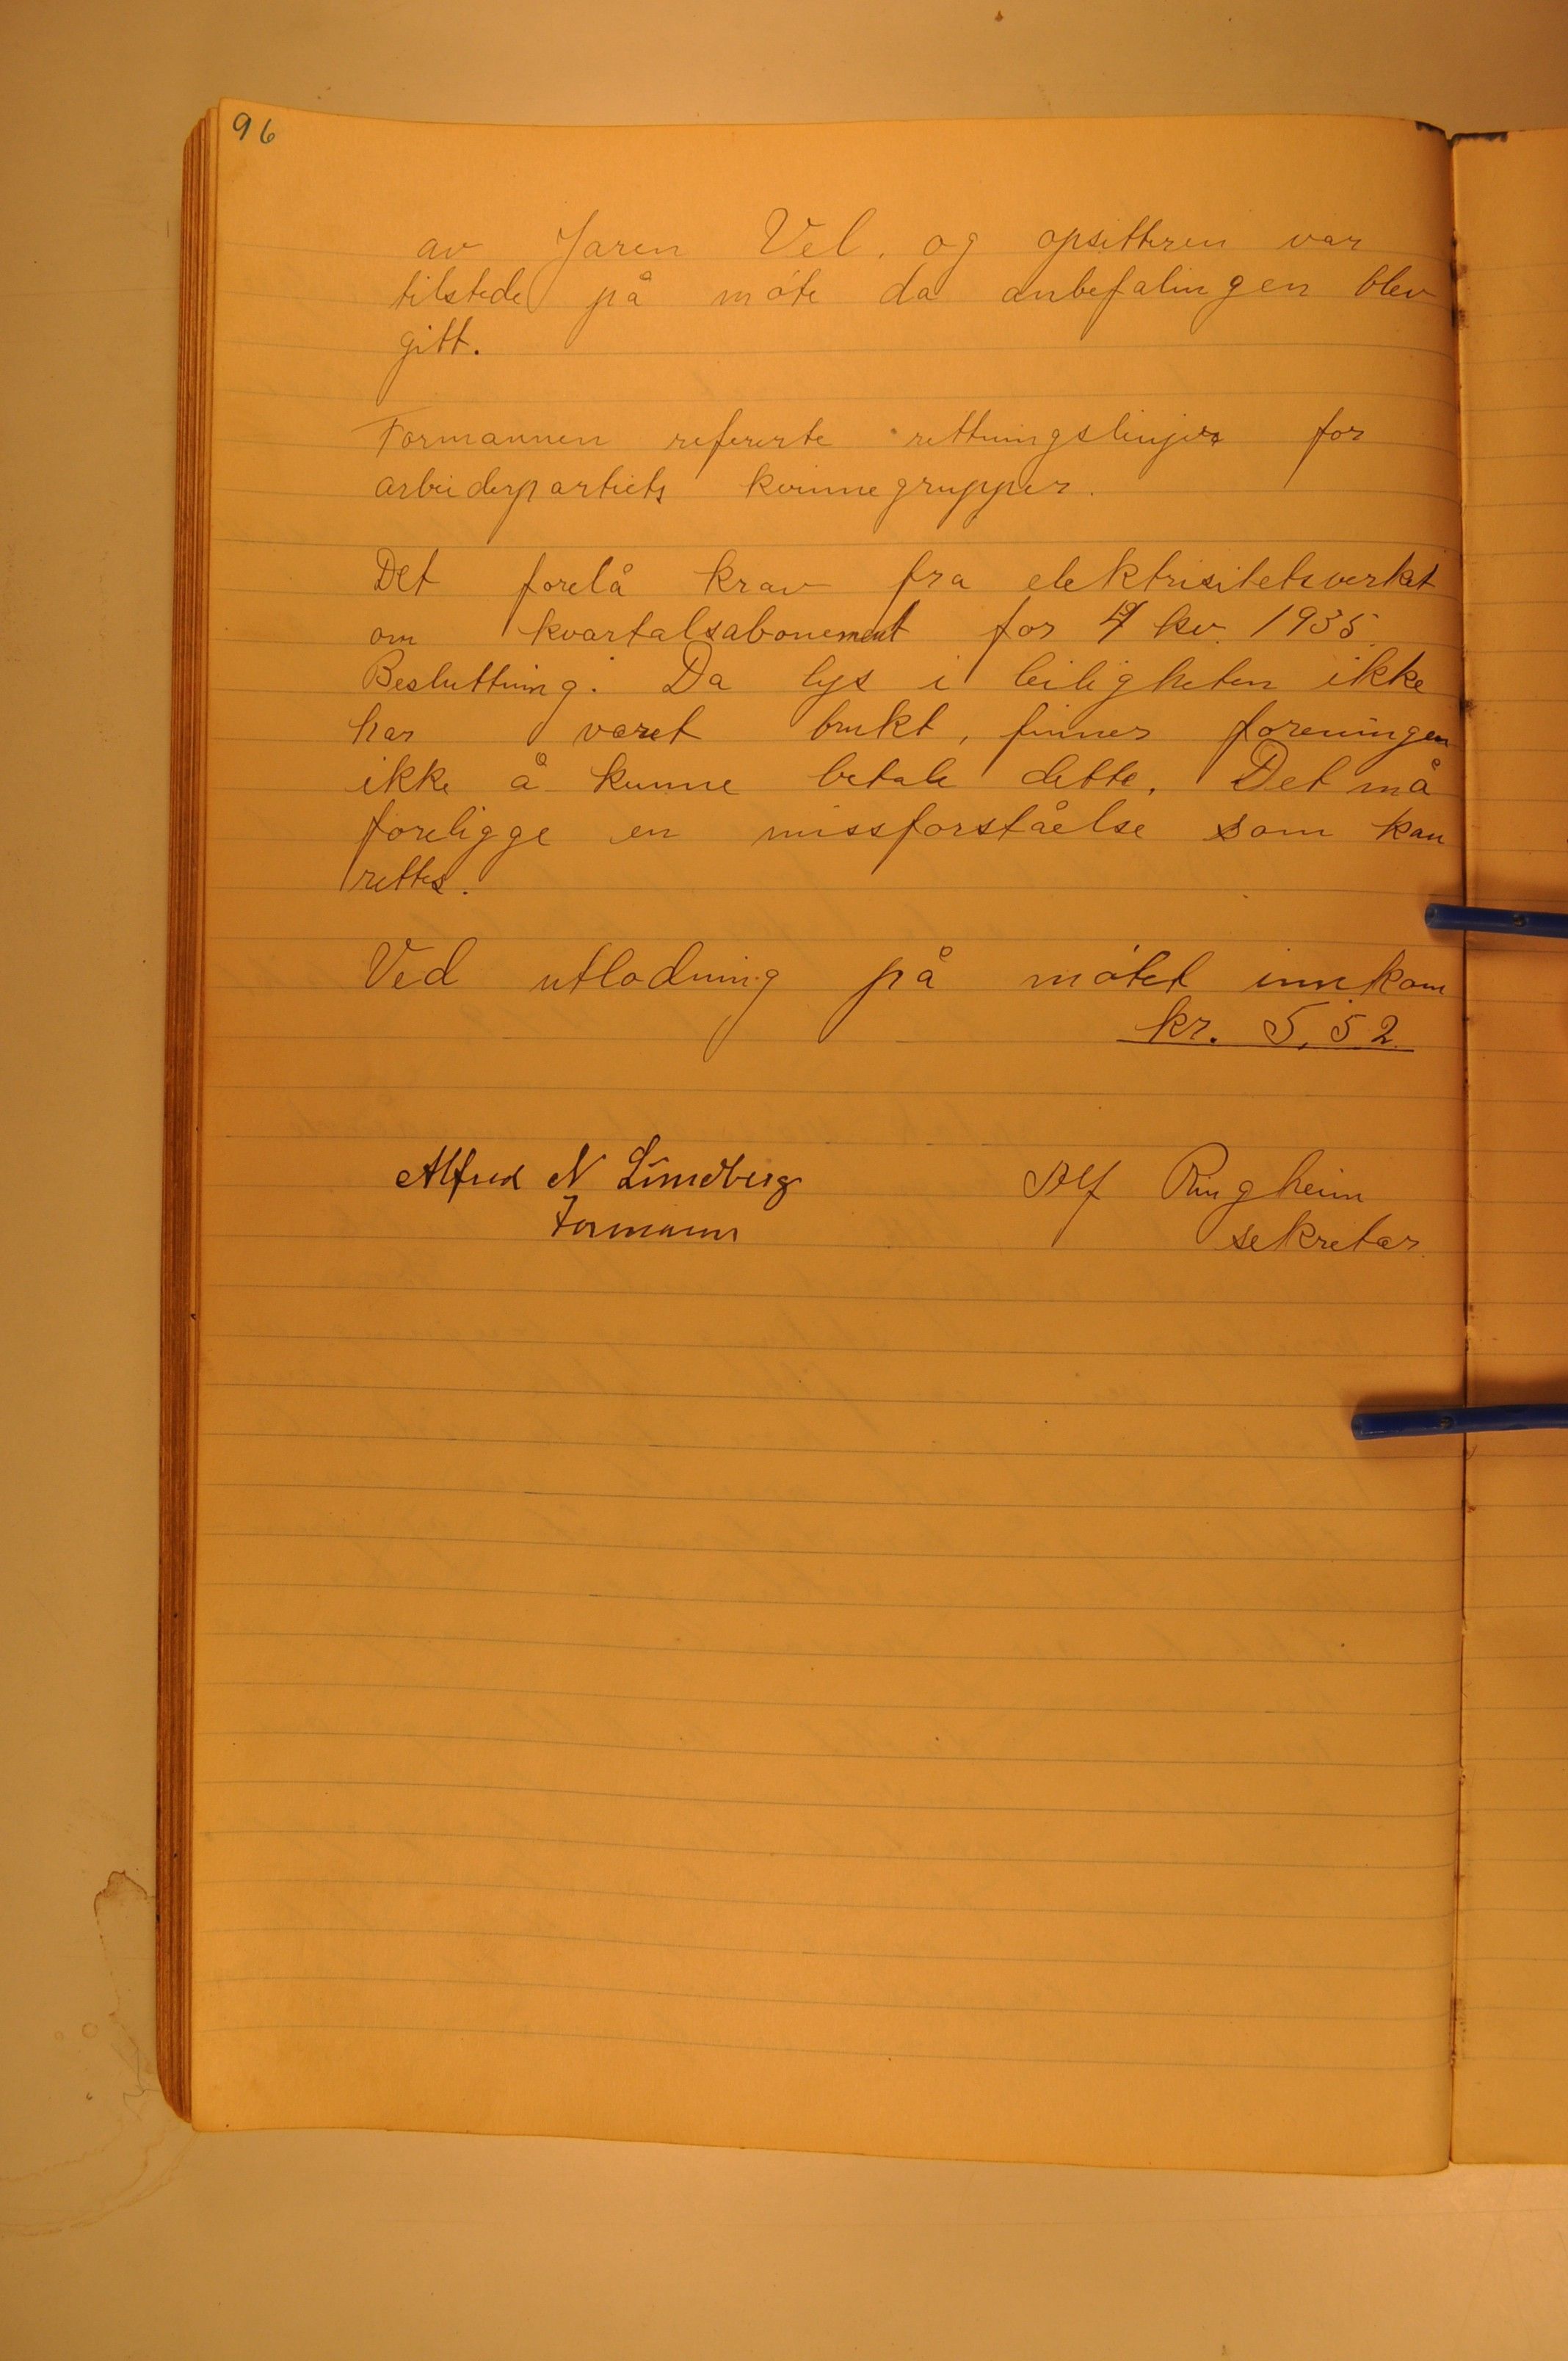 96
av Jaren Vel. og opsitteren var
tilstede på møte da anbefalingen blev
gitt.
Formannen refererte rettningslinjer for
arbeiderpartiets kvinnegrupper.
Det forelå krav fra elektrisitetsverket
om kvartalsabonement for 4 kv. 1935.
Besluttning: Da lys i leiligheten ikke
har været brukt, finner foreningen
ikke å kunne betale dette. Det må
foreligge en missforståelse som kan
rettes.
Ved utlodning på møtet innkom
kr. 5,52
Alfred N Lundberg
Formann
Alf Ringheim
sekretær.